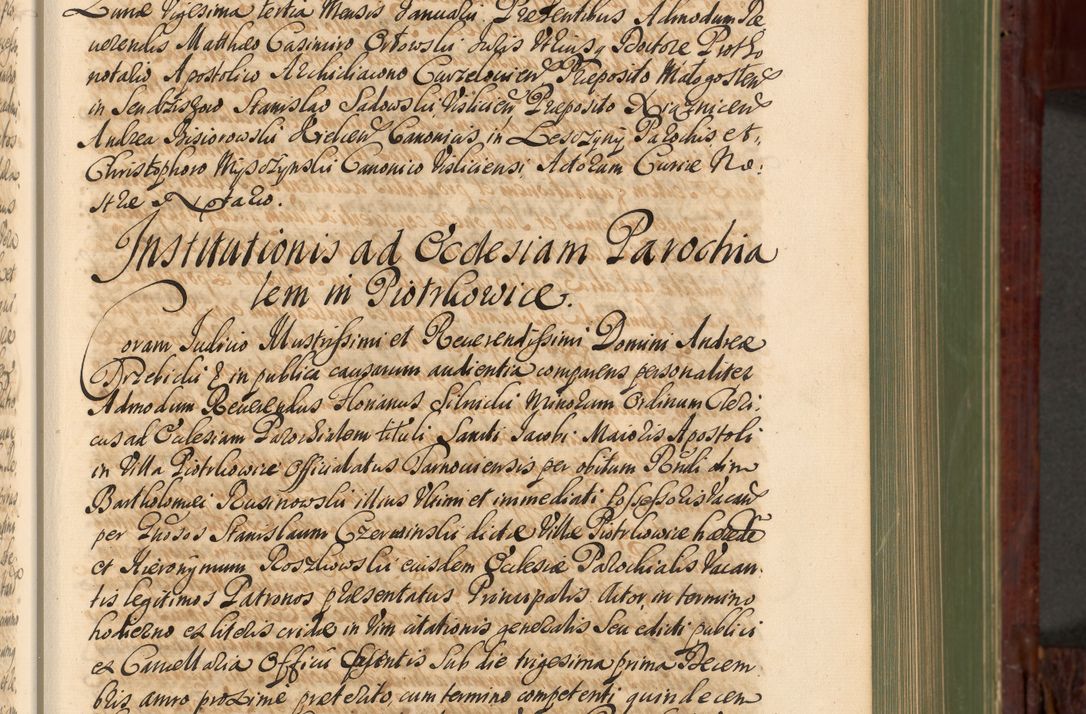 Lunæ Vigesima tertia Mensis Januarii. Præsentibus Admodum Re
uerendis Mattheo Casimiro Orłowski Juris Vtriusq Doctore Protho
notario Apostolico Archidiacono Curzelouien Præposito Małogosten
in Sendziszow Stanislao Sadowski, Visliciem Præposito Xiąznicen
Andrea Bisiorowski Kielcen Canonicis, in Lesczyny Parochis, et
Christophoro Mysozynski Canonico Visliciensi, Actoram Curiæ No:
stræ Notario.
Institutionis ad Ecclesiam Parochia
lem in Piotrkowice.
Coram Iudicio Illustrissimi et Reuerendissimi Domini Andreæ
Trzebicki & in publica causarum audientia comparens personaliter
Admodum Reuerendus Florianus Silnicki Minorum Ordinum Cleri:
cus ad Eclesiam Parochialem tituli Sancti Jacobi Maioris Apostoli
in Villa Piotrkowice Officialatus Tarnouiensis per obitum Rndi dim
Bartholomei Rusinowski illius Vltimi et immediati Possessoris Vacan
per Gnosos Stanislaum Czerminski dictæ Villæ Piotrkowice hærede
et Hieronymum Roszkowski eiusdem Ecclesiæ Parochialis Vacan
tis legitimos Patronos præsentatus Principalis Actor, in termino
hodierno ex literis cridæ in Vim citationis generalis Seu edicti publici
ex Cancellaria Officii Sub die trigesima prima Decem
bris anno proxime præterito, cum termino competenti quindecem